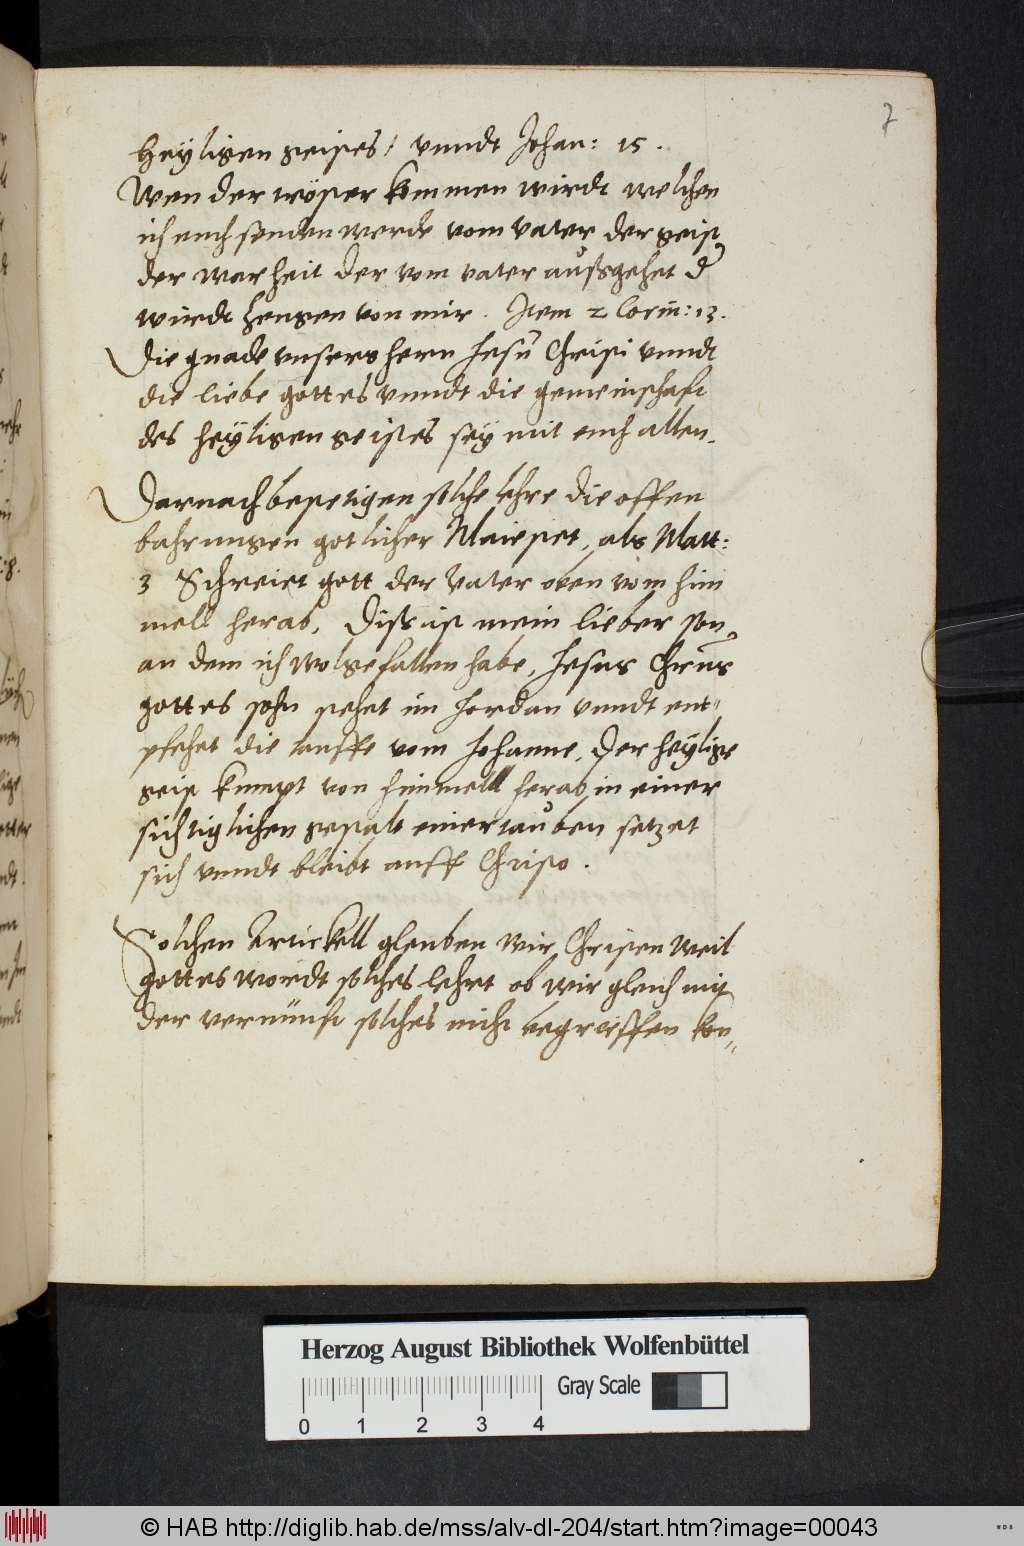 7
heyligen geistes / vnndt Johan: 15.
Wen der tröster kommen wirdt welchen
ich euch senden werde vom vater der geist
der warheit der vom vater außgehet d'
wirdt zeugen von mir. Item 2 Corin: 13.
Die gnade vnsers hern Jesu Christi vnndt
die liebe gottes vnndt die gemeinschaft
des heyligen geistes sey mit euch allen.
Darnach bestetigen solche lehre die offen
bahrungen gotlicher Maiestet, als Matt:
3 Schreiet gott der Vater oben vom him
mell herab, Diss ist mein lieber son,
an dem ich wolgefallen habe, Jesus Chrūs
gottes sohn stehet im Jordan vnndt ent„
pfehet die tauffe vom Johanne, Der heylige
geist kumpt von himmell herab in einer
sichtiglichen gestalt einer tauben setzet
sich vnndt bleibt auff Christo.
Solchen Artickell glenben wir Christen weil
gottes wordt solches lehrt ob wir gleich mit
der vernunft solches nicht begreiffen kon„
Herzog August Bibliothek Wolfenbüttel
Gray Scale
0 1 2 3 4
© HAB http://diglib.hab.de/mss/alv-dl-204/start.htm?image=00043